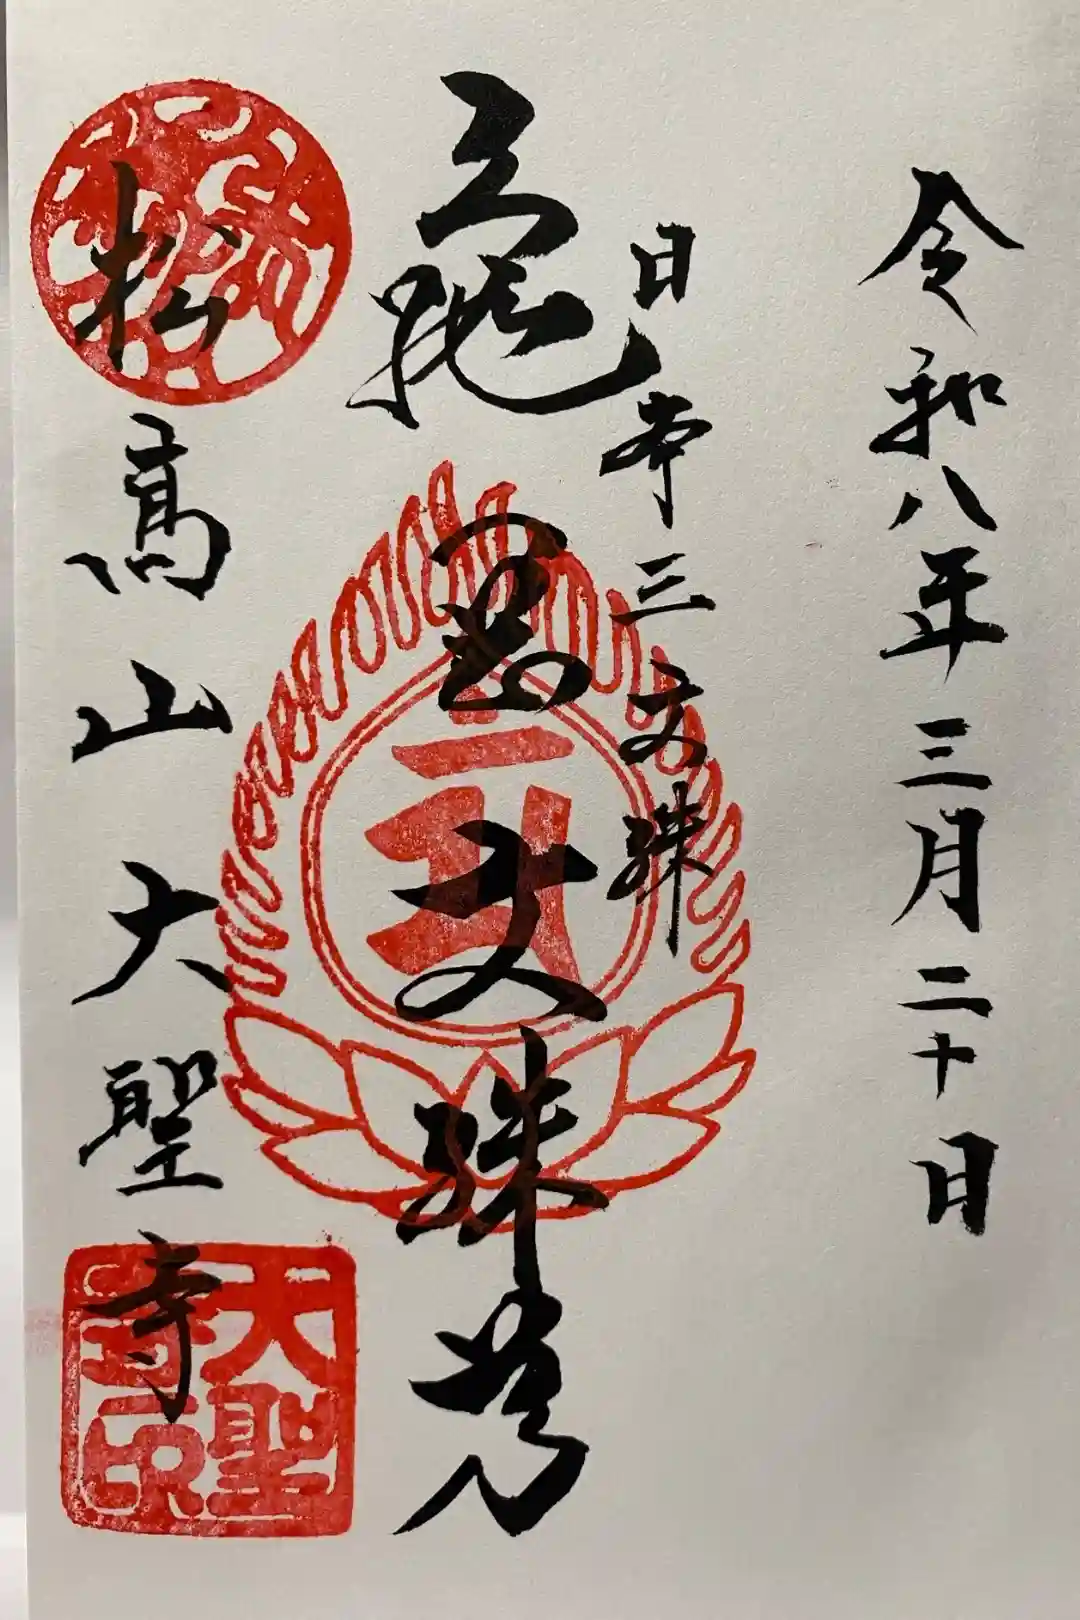 令和八年三月二十日
日本三文殊
龜岡文殊尊
松高山大聖寺
大聖寺印